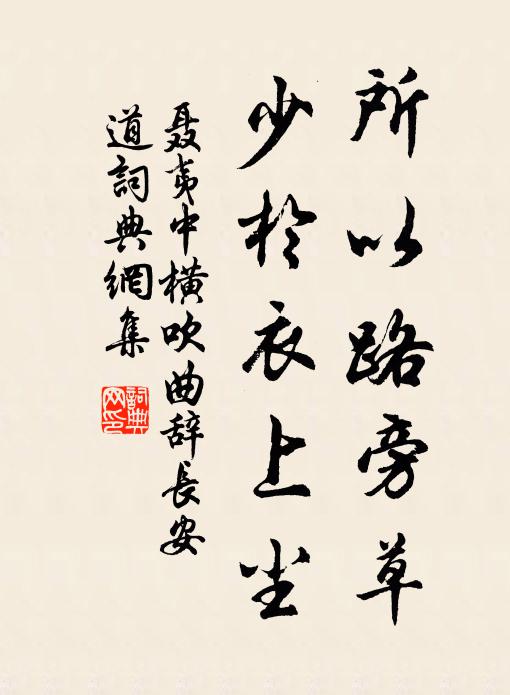 所以路旁草
少於衣上尘
聂夷中橫吹曲辞長安
道詞典網集
詞典网印